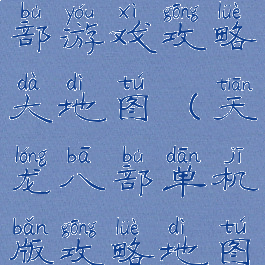 bù yóu xì gōng lüè
部游戏攻略
dà dì tú tiān
大地图（天
lóng bā bù dān jī
龙八部单机
bǎn gōng lüè dì tú
版攻略地图